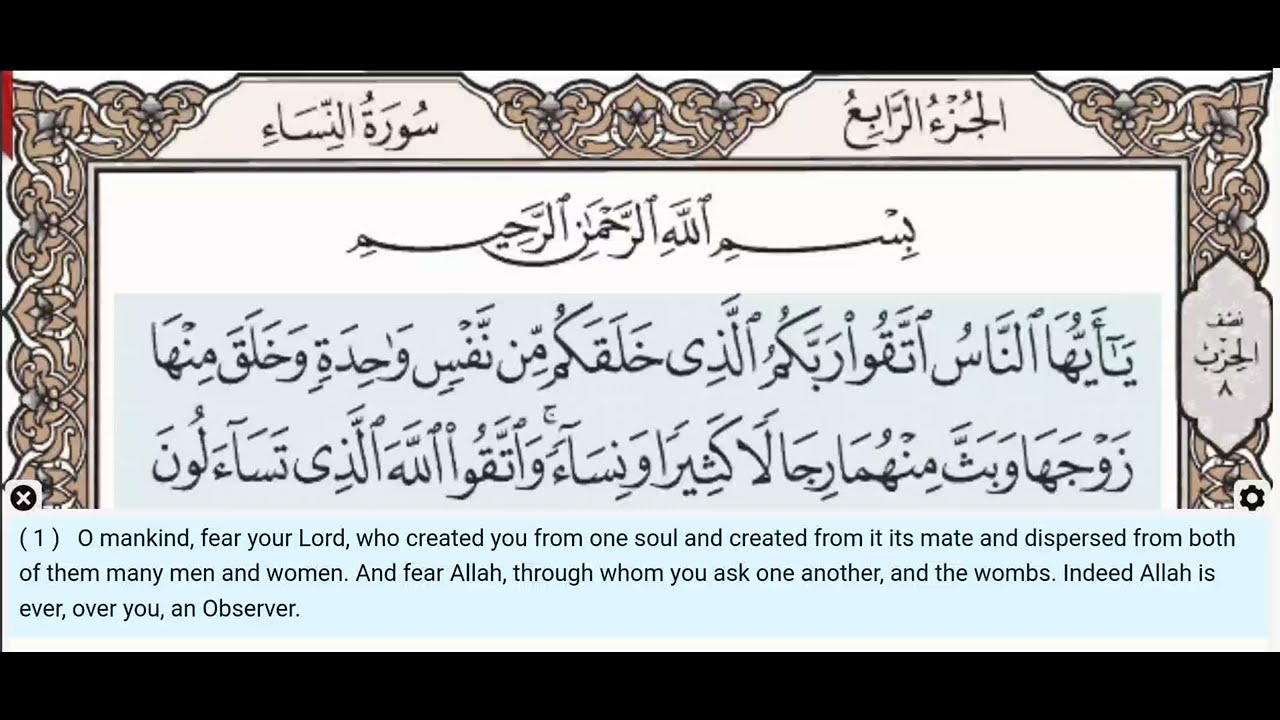 الجُزْءُ الرَّابِعُ
سُورَةُ النِّسَاءِ
بِسْمِ ٱللَّهِ ٱلرَّحْمَٰنِ ٱلرَّحِيمِ
يَٰٓأَيُّهَا ٱلنَّاسُ ٱتَّقُوا۟ رَبَّكُمُ ٱلَّذِى خَلَقَكُم مِّن نَّفْسٍ وَٰحِدَةٍ وَخَلَقَ مِنْهَا
زَوْجَهَا وَبَثَّ مِنْهُمَا رِجَالًا كَثِيرًا وَنِسَآءً ۚ وَٱتَّقُوا۟ ٱللَّهَ ٱلَّذِى تَسَآءَلُونَ
نصف
الحزب
٨
( 1 ) O mankind, fear your Lord, who created you from one soul and created from it its mate and dispersed from both
of them many men and women. And fear Allah, through whom you ask one another, and the wombs. Indeed Allah is
ever, over you, an Observer.